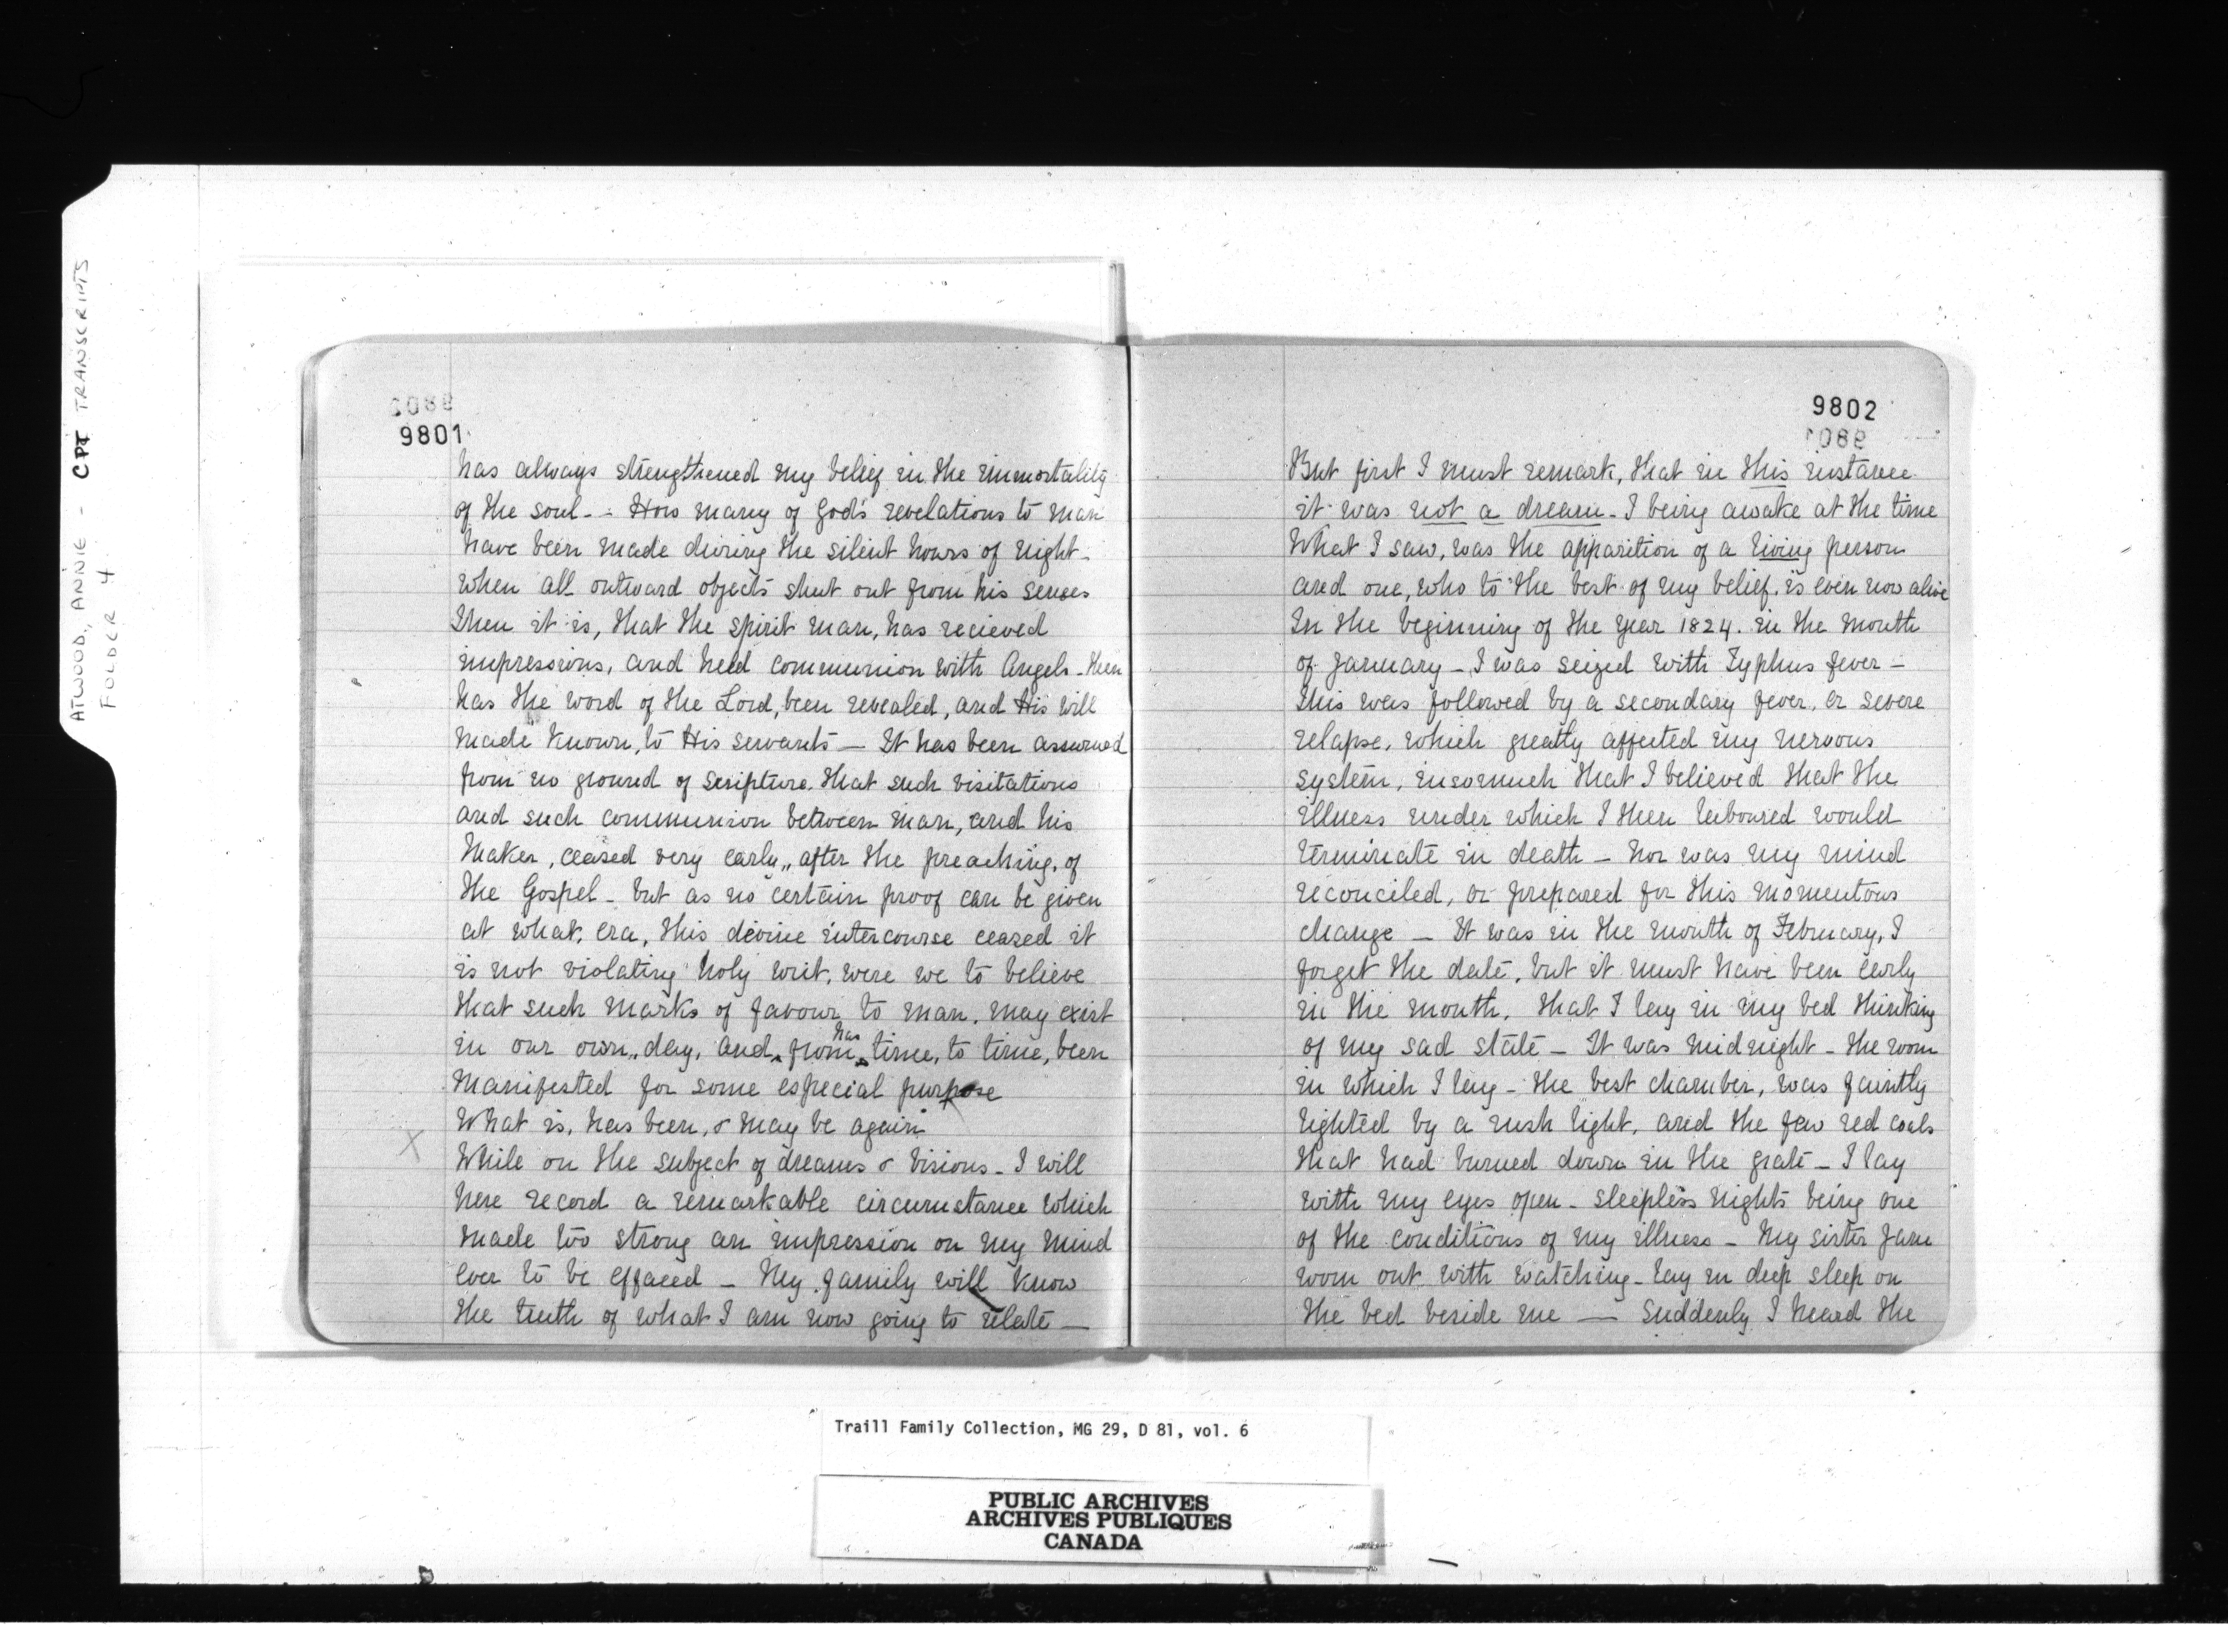 ATWOOD, ANNIE - CPT TRANSCRIPTS
FOLDER 4
9801
has always strengthened my belief in the immortality
of the soul - - How many of God's revelations to man
have been made during the silent hours of night -
when all outward objects shut out from his senses
Then it is, that the spirit man, has recieved
impressions, and held communion with Angels - then
has the word of the Lord, been revealed, and His will
made known, to His servants — It has been assumed
from no ground of scripture, that such visitations
and such communion between man, and his
Maker, ceased very early, after the preaching, of
the Gospel - but as no certain proof can be given
at what, era, this devine intercourse ceased it
is not violating holy writ, were we to believe
that such marks of favour to man, may exist
in our own, day, and, from has time, to time, been
manifested for some especial purpose
What is, has been, & may be again
X
While on the subject of dreams & visions - I will
here record a remarkable circumstance which
made too strong an impression on my mind
ever to be effaced — My family will know
the truth of what I am now going to relate —
9802
But first I must remark, that in this instance
it was not a dream - I being awake at the time
What I saw, was the apparition of a living person
and one, who to the best of my belief, is even now alive
In the beginning of the year 1824. in the month
of January - I was seized with Typhus fever -
this was followed by a secondary fever, or severe
relapse, which greatly affected my nervous
system, insomuch that I believed that the
illness under which I then laboured would
terminate in death - nor was my mind
reconciled, or prepared for this momentous
change — It was in the month of February, I
forget the date, but it must have been early
in the month, that I lay in my bed thinking
of my sad state - It was midnight - the room
in which I lay - the best chamber, was faintly
lighted by a rush light, and the few red coals
that had burned down in the grate - I lay
with my eyes open - sleepless nights being one
of the conditions of my illness - My sister Jane
worn out with watching - lay in deep sleep on
the bed beside me — Suddenly I heard the
Traill Family Collection, MG 29, D 81, vol. 6
PUBLIC ARCHIVES
ARCHIVES PUBLIQUES
CANADA